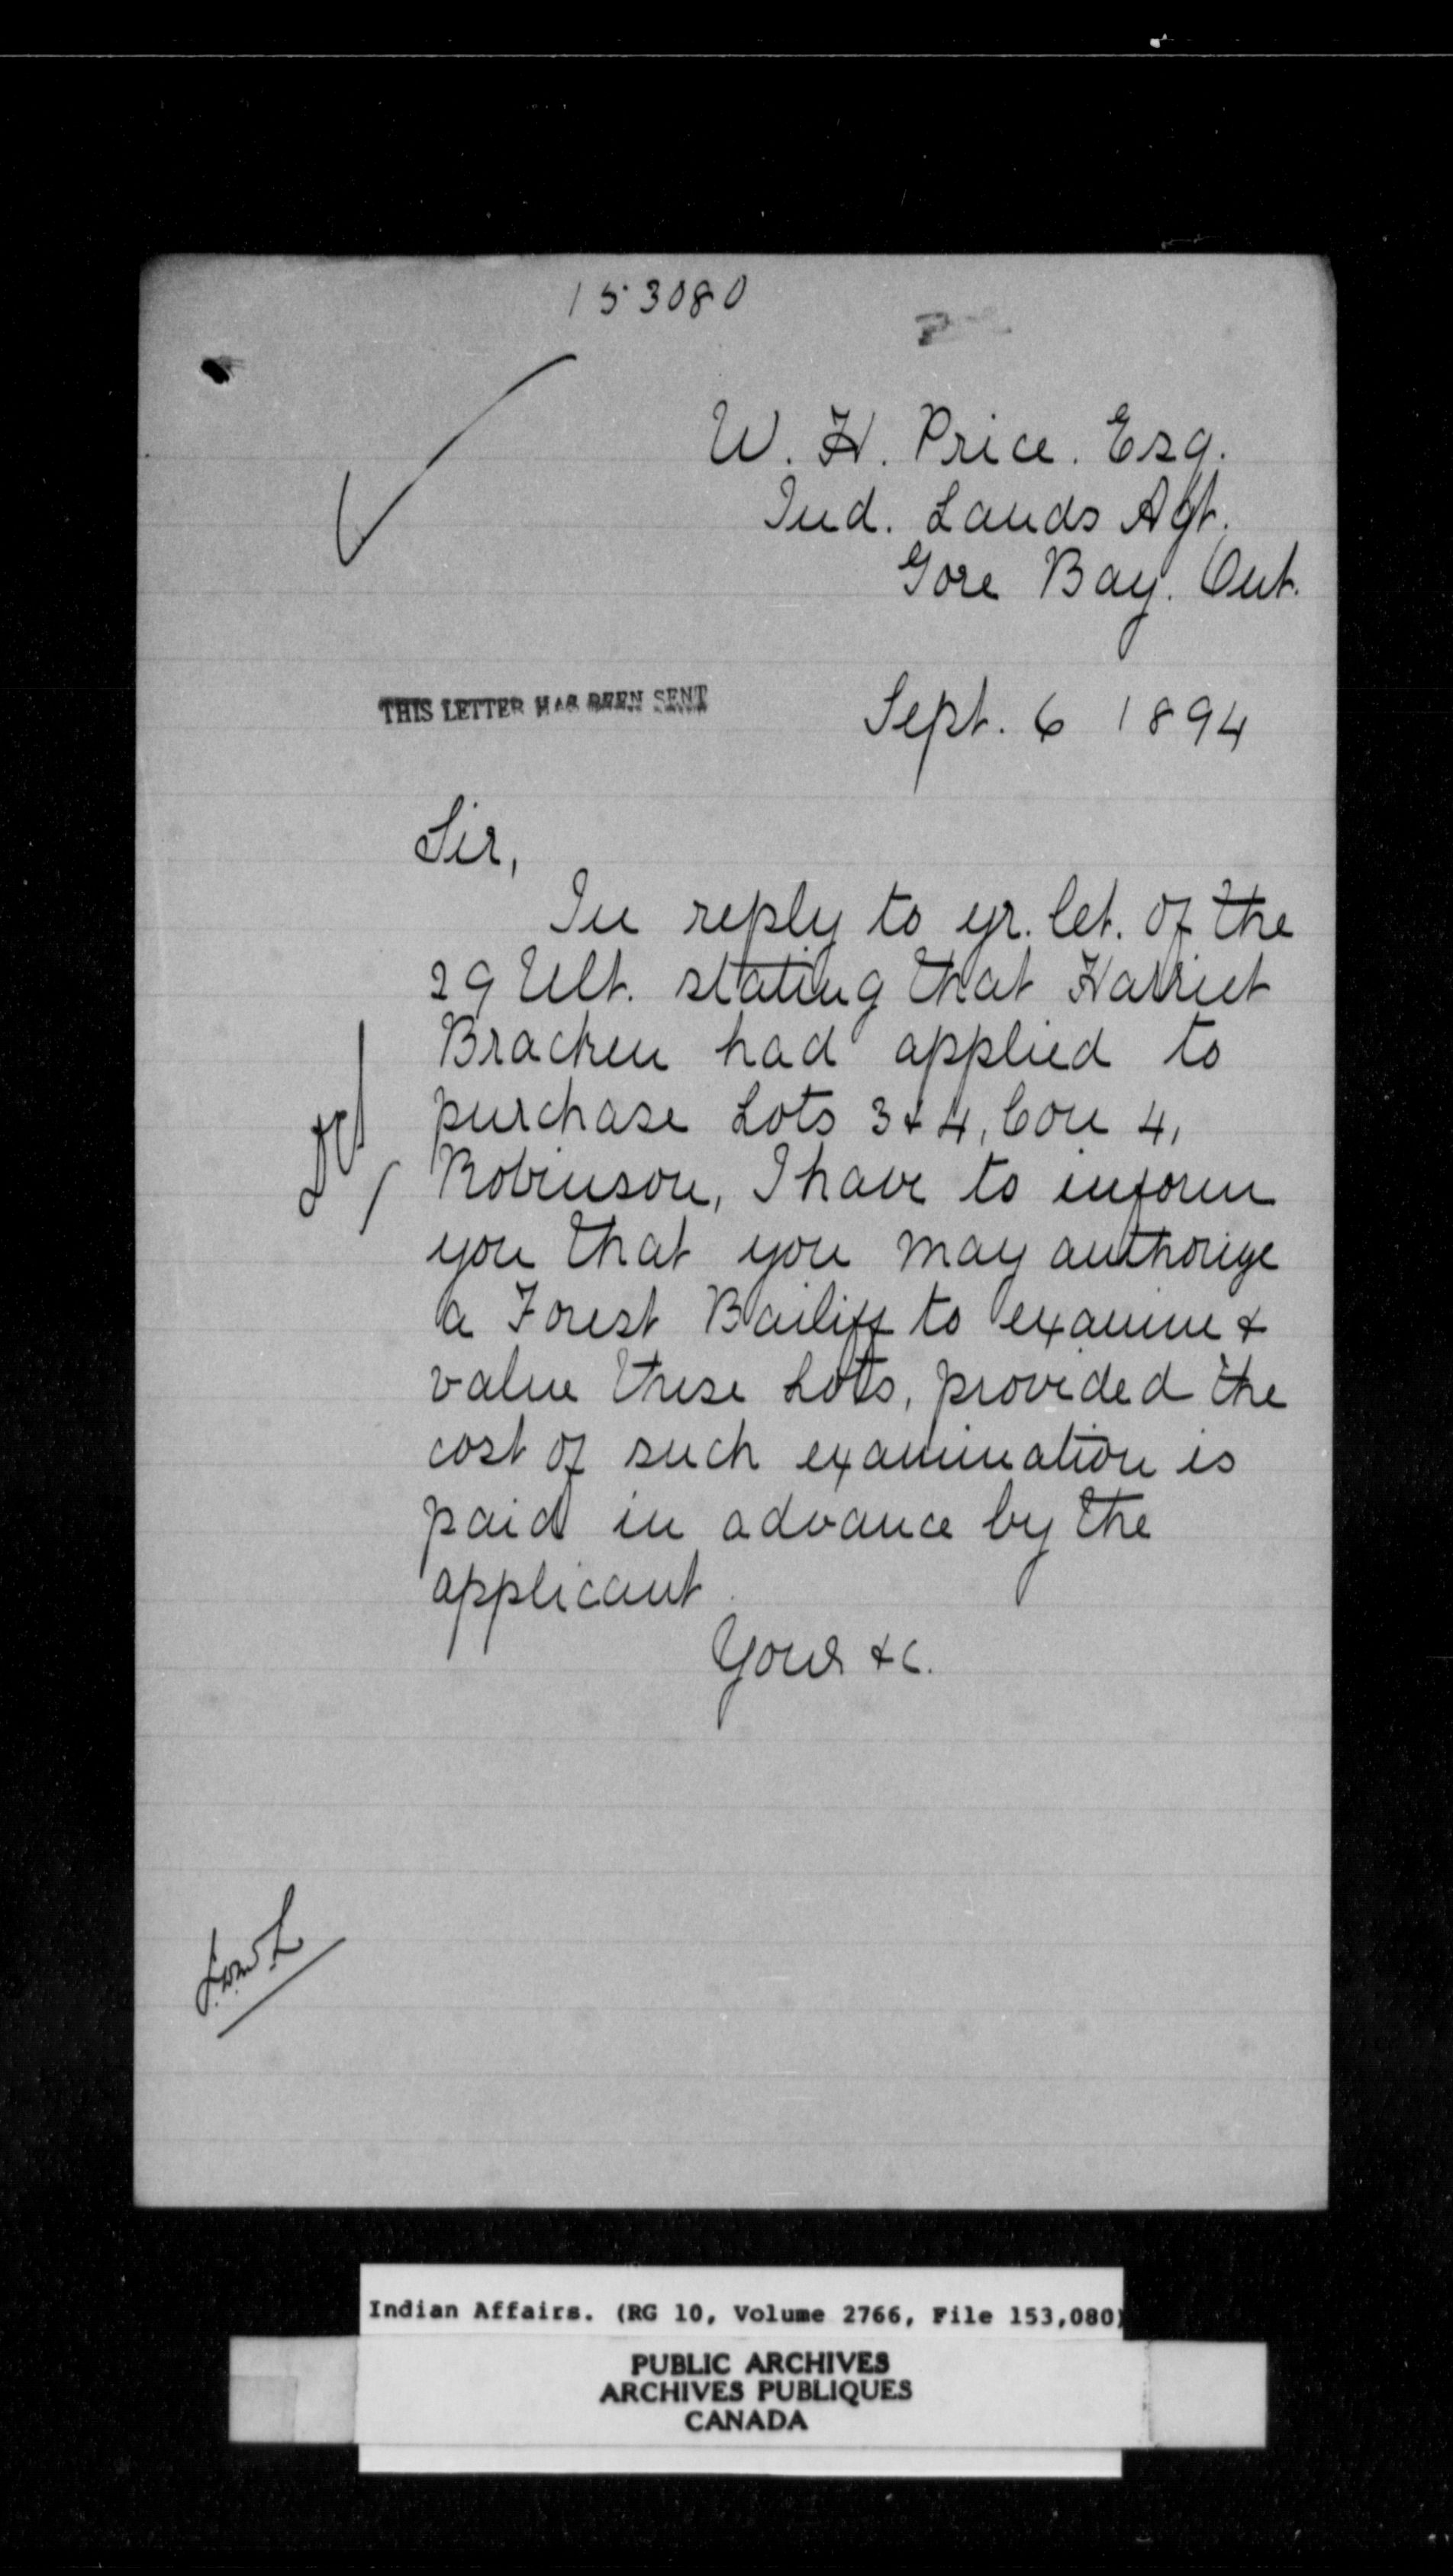 153080
W. H. Price. Esq.
Ind. Lands Agt.
Gore Bay. Ont.
THIS LETTER HAS BEEN SENT
Sept. 6 1894
Sir,
In reply to yr. let. of the
29 Ult. stating that Harriet
Bracken had applied to
purchase Lots 3 & 4, Con 4,
Robinson, I have to inform
you that you may authorize
a Forest Bailiff to examine &
value these Lots, provided the
cost of such examination is
paid in advance by the
applicant.
Yours &c.
Indian Affairs. (RG 10, Volume 2766, File 153,080)
PUBLIC ARCHIVES
ARCHIVES PUBLIQUES
CANADA